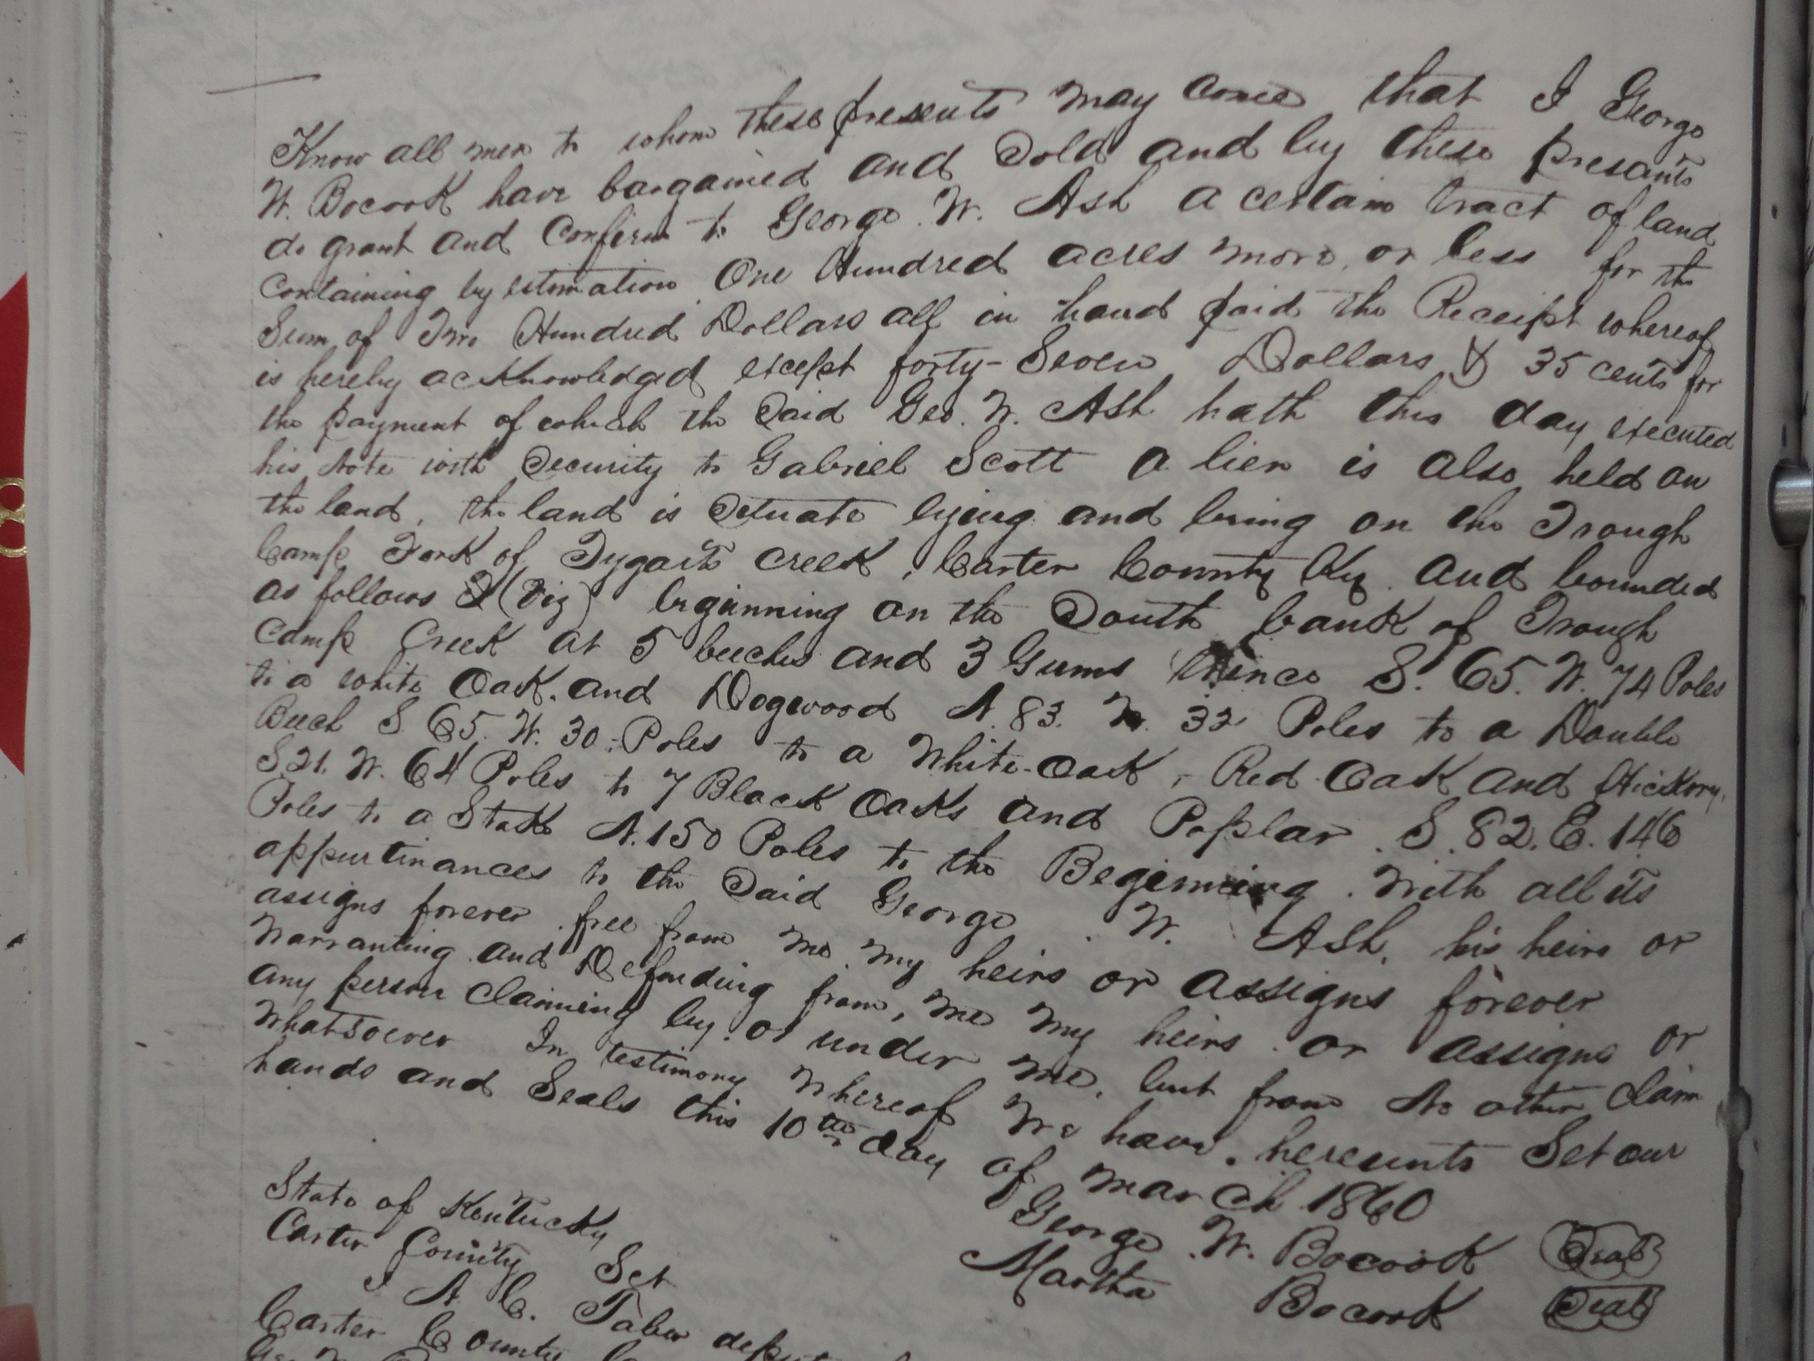 Know all men to whom these presents may come that I George
W. Bocook have bargained and Sold and by these presants
do grant and Confirm to George W. Ash a certain tract of land
Containing by estimation One Hundred acres more or less for the
Sum of Two Hundred Dollars all in hand paid the Receipt whereof
is hereby acknowledged except forty-Seven Dollars & 35 cents for
the payment of which the Said Geo. W. Ash hath this day executed
his Note with Security to Gabriel Scott a lien is also held on
the land, the land is Situate lying and being on the Trough
Camp Fork of Tygarts Creek, Carter County Ky. and bounded
as follows (Viz) beginning on the South bank of Trough
Camp Creek at 5 beeches and 3 Gums thence S. 65. W. 74 Poles
to a white Oak and Dogwood N. 83. W. 32 Poles to a Double
Beech S. 65. W. 30. Poles to a White-Oak, Red Oak and Hickory,
S 21. W. 64 Poles to 7 Black Oaks and Poplar S. 82. E. 146
Poles to a Stak N. 150 Poles to the Beginning. With all its
appurtinances to the Said George W. Ash, his heirs or
assigns forever free from me my heirs or assigns forever
Warranting and Defending from, me my heirs or assigns or
any person Claiming by or under me, but from No other Claim
Whatsoever In testimony Whereof We have hereunto Set our
hands and Seals this 10th day of March 1860
George W. Bocook Seal
Martha Bocook Seal
State of Kentucky
Carter County Sct
I A. C. Taber
Carter County